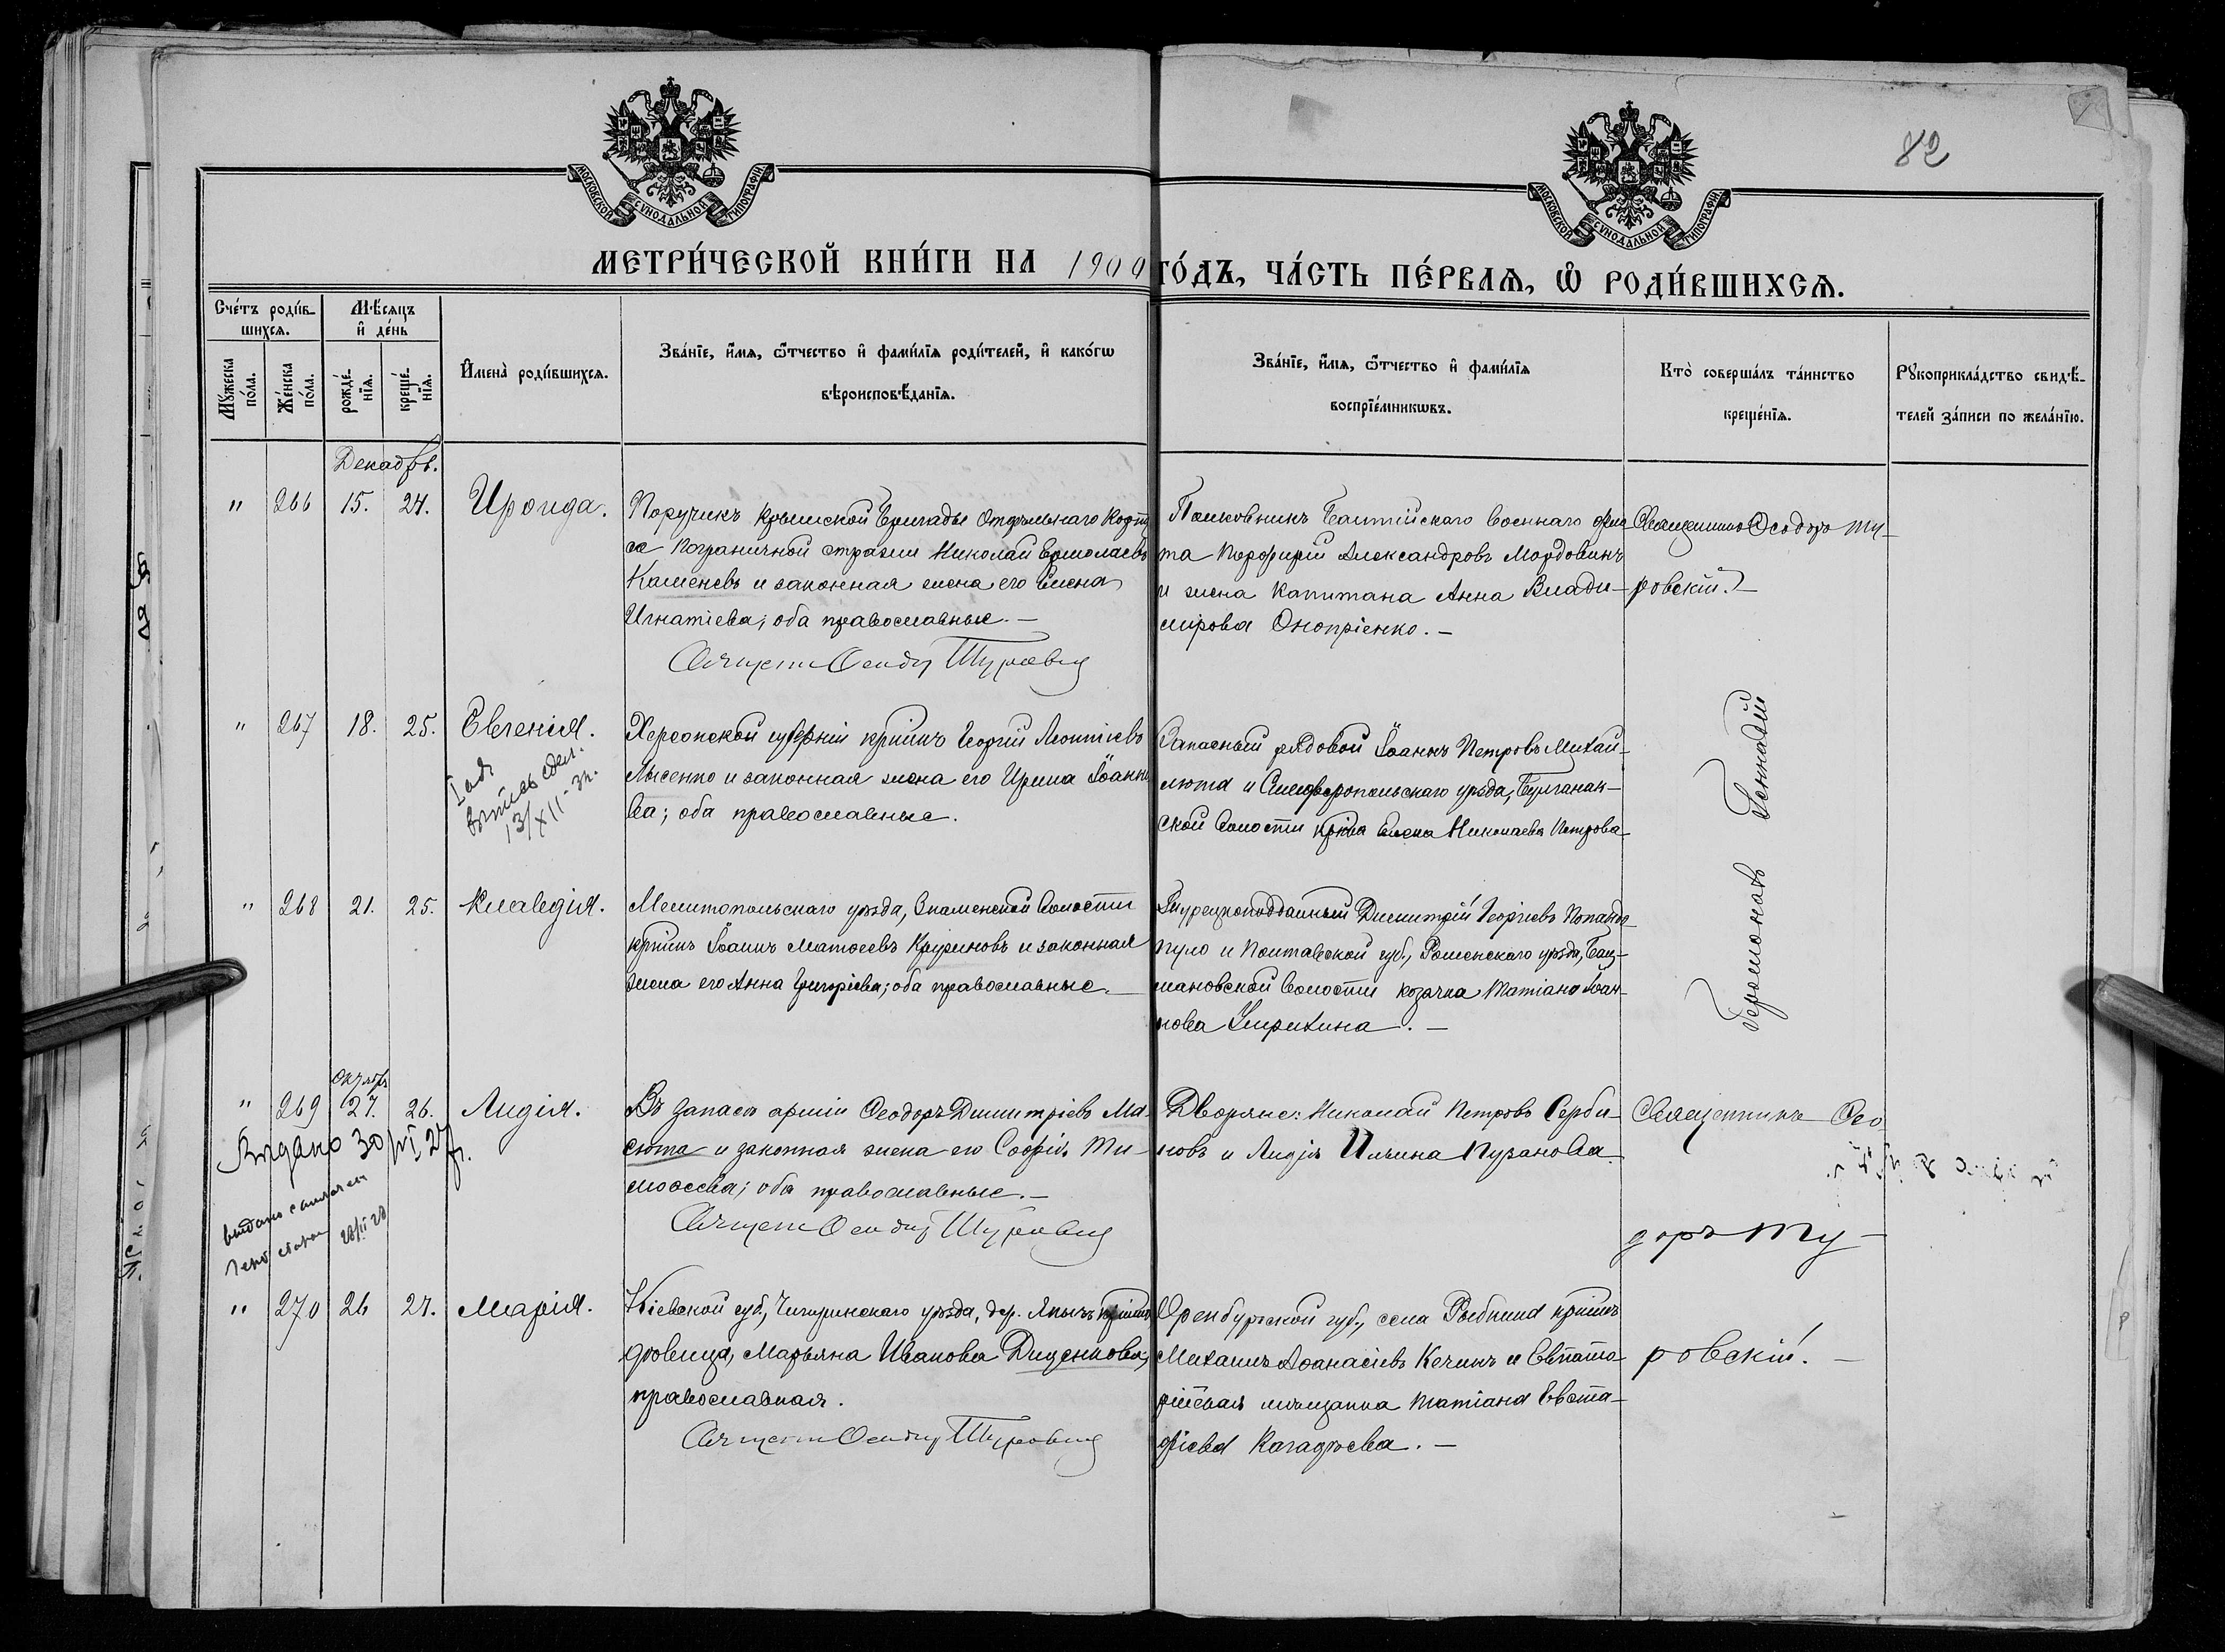 МОСКОВСКОЙ СѴНОДАЛЬНОЙ ТИПОГРАФІИ
МОСКОВСКОЙ СѴНОДАЛЬНОЙ ТИПОГРАФІИ
82
МЕТРИ́ЧЕСКОЙ КНИ́ГИ НА 1900 ГО́ДЪ, ЧА́СТЬ ПЕ́РВАѦ, Ѡ҆ РОДИ́ВШИХСѦ.
Сче́тъ роди́в-
шихсѧ.
Мѣ́сѧцъ
и҆ де́нь
Мꙋ́жеска
по́ла.
Же́нска
по́ла.
рожде́-
нїѧ.
креще́-
нїѧ.
И҆мена̀ роди́вшихсѧ.
Зва́нїе, и҆́мѧ, ѻ҆́тчество и҆ фами́лїѧ роди́телей, и҆ како́гѡ
вѣроисповѣ́данїѧ.
Зва́нїе, и҆́мѧ, ѻ҆́тчество и҆ фами́лїѧ
воспрїе́мникѡвъ.
Кто̀ соверша́лъ та́инство
креще́нїѧ.
Рꙋкоприкла́дство свидѣ́-
телей за́писи по жела́нїю.
Декабрь.
" 266 15. 24. Ироида.
Поручикъ Крымской бригады Отдѣльнаго Корпу
са Пограничной стражи Николай Ермолаевъ
Каменевъ и законная жена его Елена
Игнатіева; оба православные. —
Полковникъ Балтійскаго военнаго фло
та Порфирій Александровъ Мордовинъ
и жена капитана Анна Влади-
мірова Оноприенко. —
Священникъ Ѳеодоръ Ту-
ровскій. —
" 267 18. 25. Евгенія.
выпись сдел.
13/XII-
Херсонской губерніи кр-нинъ Георгій Леонтіевъ
Лысенко и законная жена его Ирина Іоанно
ва; оба православные.
Запасный рядовой Іоаннъ Петровъ Михай-
люта и Симферопольскаго уѣзда, Булганак-
ской волости кр-нка Елена Николаева Петрова
Іеромонахъ Геннадій
" 268 21. 25. Клавдія.
Мелитопольскаго уѣзда, Знаменской волости
кр-нинъ Іоаннъ Матѳеевъ и законная
жена его Анна Григоріева; оба православные. —
Турецкоподданный Димитрій Георгіевъ Попандо
пуло и Полтавской губ., Роменскаго уѣзда,
мановской волости козачка Татіана Іоан-
нова —
Октябрь
" 269 27. 26. Лидія.
Выдано 30/VI 27
выдано
28
Въ запасѣ арміи Ѳеодоръ Димитріевъ Ма-
сюта и законная жена его Софія Ти-
моѳеева; оба православные. —
Дворяне: Николай Петровъ Серби-
новъ и Лидія Ильина Пузанова
Священникъ Ѳео
доръ Ту-
ровскій. —
" 270 26 27. Марія.
Кіевской губ., Чигиринскаго уѣзда, дер.
вдовица, Марьяна Иванова Диденкова,
православная.
Оренбургской губ., села кр-нинъ
Михаилъ Аѳанасіевъ и Евпато-
рійская мѣщанка Татіана Евста-
фіева —